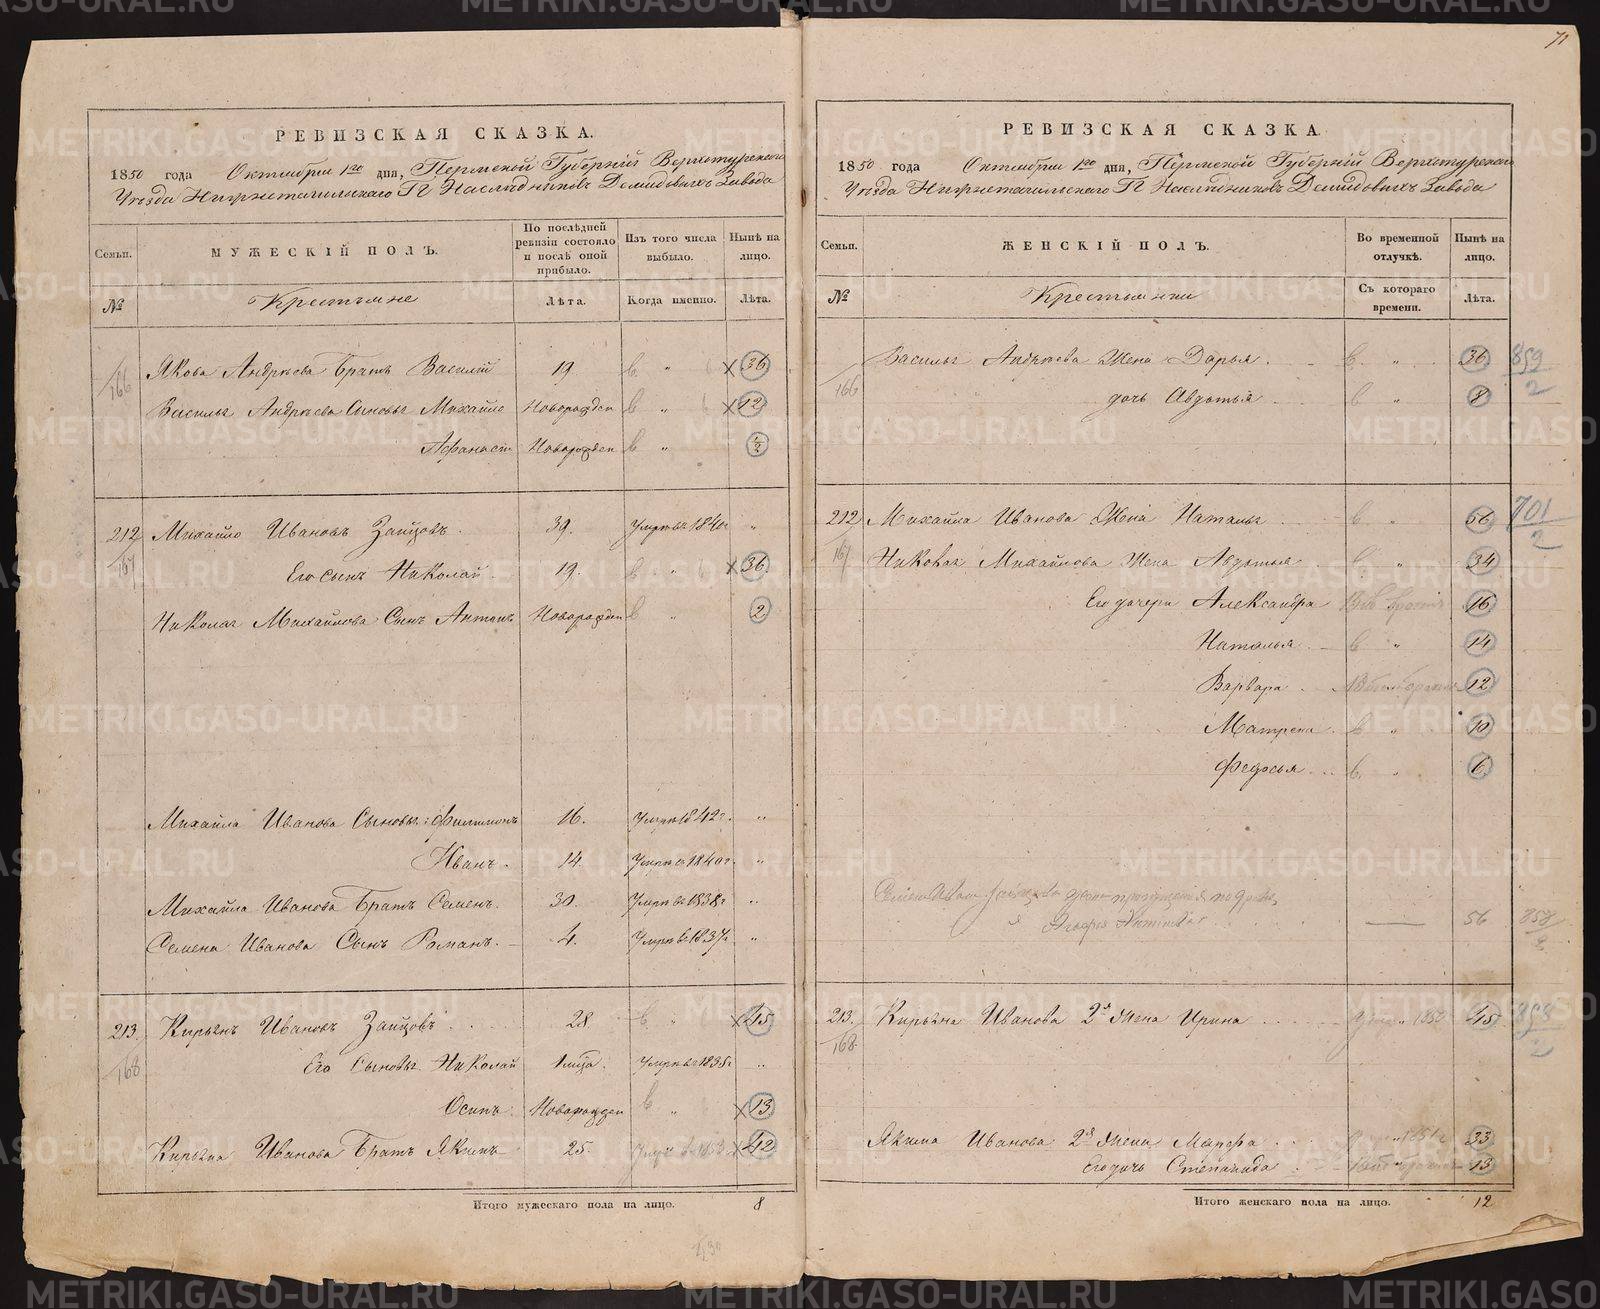 71
РЕВИЗСКАЯ СКАЗКА.
1850 года Октября 1го дня, Пермской Губерніи Верхотурскаго
Уѣзда Нижнетагильскаго Гг Наслѣдниковъ Демидовыхъ Завода
Семьи. МУЖЕСКІЙ ПОЛЪ. По послѣдней ревизіи состояло и послѣ оной прибыло. Изъ того числа выбыло. Нынѣ на лицо.
№ Крестьяне Лѣта. Когда именно. Лѣта.
166 Якова Андреева Братъ Василій 19 в " 36
Василья Андреева Сыновья Михайло Новорожден в " 12
Афанасій Новорожден в " ½
212 Михайло Ивановъ Зайцовъ. 39. Умре въ 1840г "
167 Его сынъ Николай. 19. в " 36
Николая Михайлова Сынъ Антонъ Новорожден в " 2
Михайла Иванова Сыновья: Филимонъ 16. Умре 1842г. "
Иванъ. 14. Умре въ 1840г. "
Михайла Иванова Братъ Семенъ. 30. Умре въ 1838г "
Семена Иванова Сынъ Романъ. 4. Умре въ 1837г. "
213. Кирьянъ Ивановъ Зайцовъ 28. в " 45
168 Его Сыновья Николай Умре въ 1835г "
Осипъ. Новорожден в " 13
Кирьяна Иванова Братъ Якимъ 25. 1853 42
Итого мужескаго пола на лицо. 8
РЕВИЗСКАЯ СКАЗКА
1850 года Октября 1го дня, Пермской Губерніи Верхотурскаго
Уѣзда Нижнетагильскаго Гг Наслѣдниковъ Демидовыхъ Завода
Семьи. ЖЕНСКІЙ ПОЛЪ. Во временной отлучкѣ. Нынѣ на лицо.
№ Крестьянки Съ котораго времени. Лѣта.
Василья Андреева Жена Дарья. в " 36 859/2
166 дочь Авдотья в " 8
212 Михайла Иванова Жена Наталья в " 56 701/2
167 Николая Михайлова Жена Авдотья в " 34
Его дочери Александра 16
Наталья. в " 14
Варвара. 12
Матрена. в " 10
Федосья. в " 6
56 858/2
213. Кирьяна Иванова 2я Жена Ирина 1852 45 858/2
168.
Якима Иванова 2я Жена Марфа 1851г 33
Его дочь Степанида 13
Итого женскаго пола на лицо. 12
METRIKI.GASO-URAL.RU